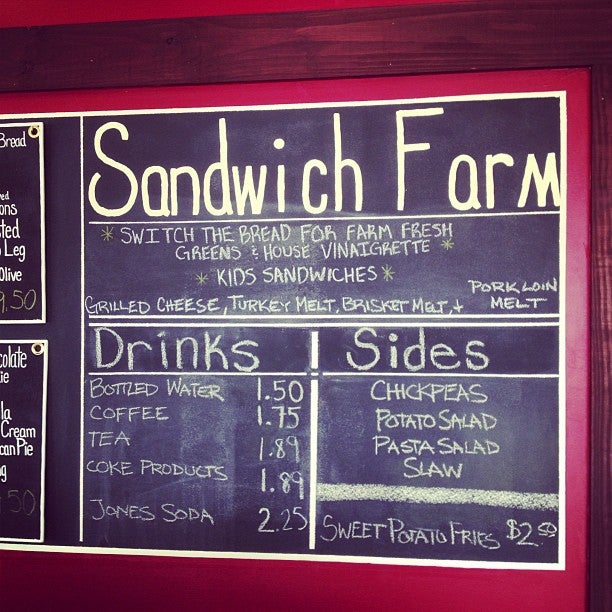 Bread
ons
Leg
Olive
9.50
Cream
Sandwich Farm
* SWITCH THE BREAD FOR FARM FRESH
GREENS & HOUSE VINAIGRETTE *
* KIDS SANDWICHES *
GRILLED CHEESE, TURKEY MELT, BRISKET MELT, + PORK LOIN
MELT
Drinks
BOTTLED WATER 1.50
COFFEE 1.75
TEA 1.89
COKE PRODUCTS 1.89
JONES SODA 2.25
Sides
CHICKPEAS
POTATO SALAD
PASTA SALAD
SLAW
SWEET POTATO FRIES $2.50